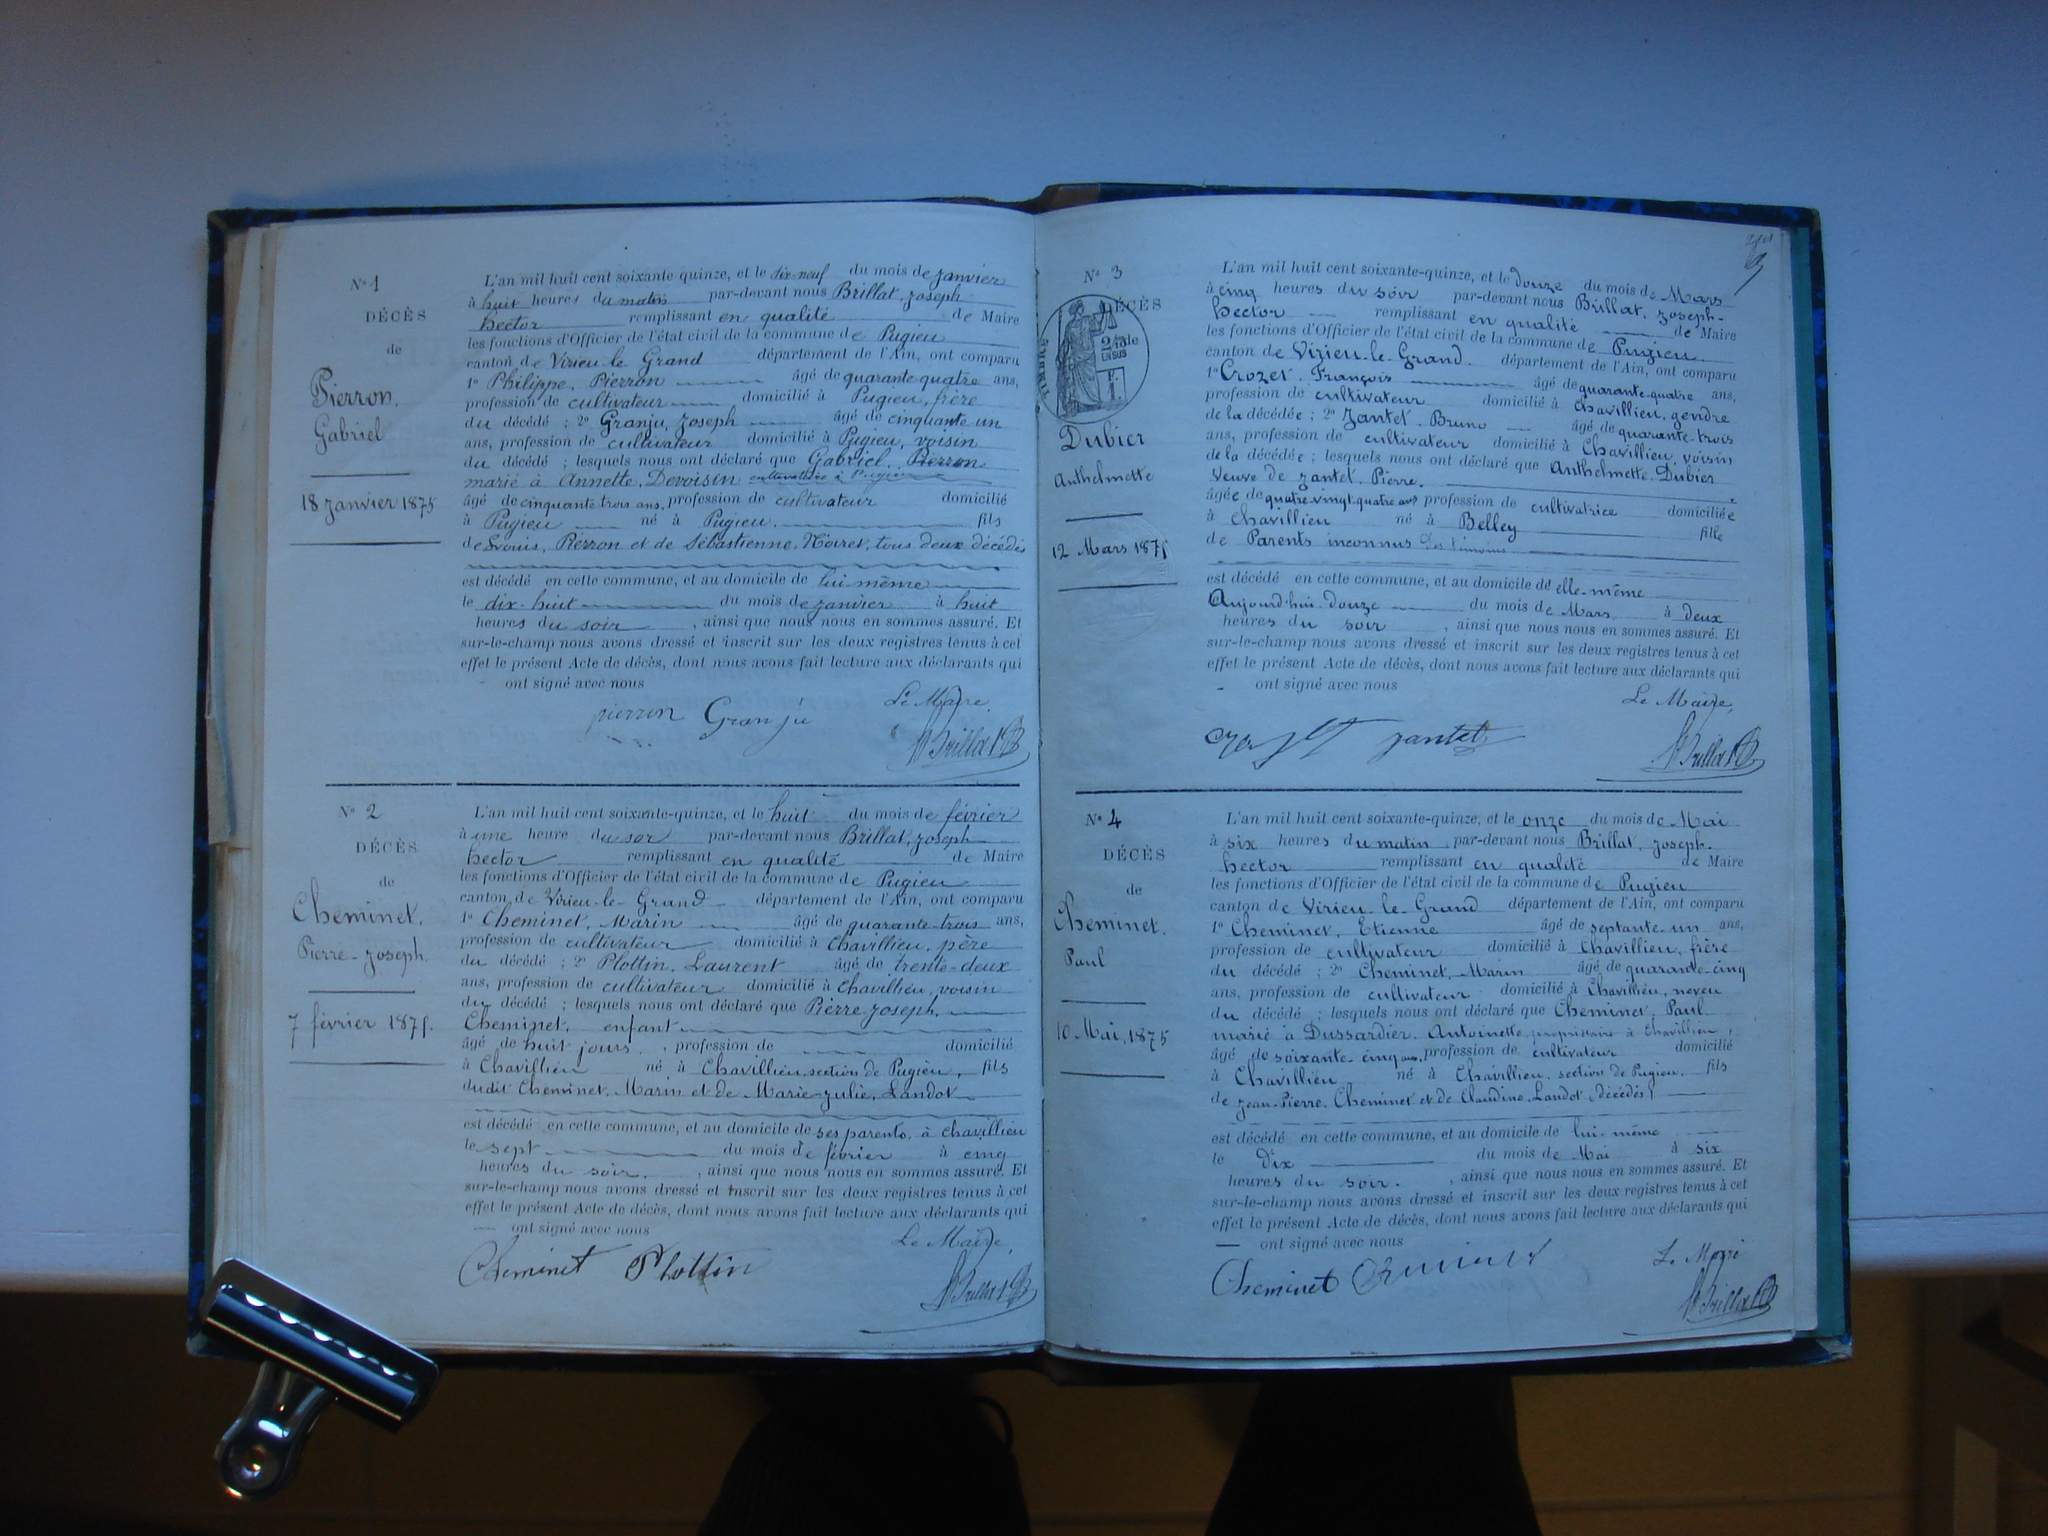 N° 1
DÉCÈS
de
Pierron.
Gabriel
18 janvier 1875
L'an mil huit cent soixante quinze, et le dix-neuf du mois de janvier
à huit heures du matin par-devant nous Brillat, joseph
hector remplissant en qualité de Maire
les fonctions d'Officier de l'état civil de la commune de Pugieu
canton de Virieu-le Grand département de l'Ain, ont comparu
1° Philippe, Pierron âgé de quarante-quatre ans,
profession de cultivateur domicilié à Pugieu, frère
du décédé ; 2° Granju, joseph âgé de cinquante un
ans, profession de cultivateur domicilié à Pugieu, voisin
du décédé ; lesquels nous ont déclaré que Gabriel, Pierron
marié à Annette, Devoisin cultivatrice à Pugieu
âgé de cinquante trois ans, profession de cultivateur domicilié
à Pugieu né à Pugieu. fils
de Louis, Pierron et de Sébastienne, Moiret, tous deux décédés
est décédé en cette commune, et au domicile de lui-même
le dix-huit du mois de janvier à huit
heures du soir, ainsi que nous nous en sommes assuré. Et
sur-le-champ nous avons dressé et inscrit sur les deux registres tenus à cet
effet le présent Acte de décès, dont nous avons fait lecture aux déclarants qui
ont signé avec nous
Le Maire,
pierron Granju
Brillat
N° 2
DÉCÈS
de
Cheminet.
Pierre-joseph
7 février 1875.
L'an mil huit cent soixante-quinze, et le huit du mois de février
à une heure du sor par-devant nous Brillat, joseph
hector remplissant en qualité de Maire
les fonctions d'Officier de l'état civil de la commune de Pugieu
canton de Virieu-le-Grand département de l'Ain, ont comparu
1° Cheminet, Marin âgé de quarante-trois ans,
profession de cultivateur domicilié à Chavillieu, père
du décédé ; 2° Plottin, Laurent âgé de trente-deux
ans, profession de cultivateur domicilié à Chavillieu, voisin
du décédé ; lesquels nous ont déclaré que Pierre joseph,
Cheminet, enfant
âgé de huit jours, profession de domicilié
à Chavillieu né à Chavillieu, section de Pugieu, fils
dudit Cheminet, Marin et de Marie-julie, Landot
est décédé en cette commune, et au domicile de ses parents, à Chavillieu
le sept du mois de février à cinq
heures du soir, ainsi que nous nous en sommes assuré. Et
sur-le-champ nous avons dressé et inscrit sur les deux registres tenus à cet
effet le présent Acte de décès, dont nous avons fait lecture aux déclarants qui
ont signé avec nous
Le Maire,
Cheminet Plottin
Brillat
N° 3
DÉCÈS
Dubier
Anthelmette
12 Mars 1875
L'an mil huit cent soixante-quinze, et le douze du mois de Mars
à cinq heures du soir par-devant nous Brillat, joseph-
hector remplissant en qualité de Maire
les fonctions d'Officier de l'état civil de la commune de Pugieu.
canton de Virieu-le-Grand. département de l'Ain, ont comparu
1° Crozet, François âgé de quarante-quatre ans,
profession de cultivateur domicilié à Chavillieu, gendre
de la décédée ; 2° Jantet, Bruno âgé de quarante-trois
ans, profession de cultivateur domicilié à Chavillieu, voisin
de la décédée ; lesquels nous ont déclaré que Anthelmette, Dubier
veuve de jantet, Pierre.
âgée de quatre-vingt-quatre ans profession de cultivatrice domiciliée
à Chavillieu né à Belley fille
de Parents inconnus des témoins
est décédé en cette commune, et au domicile de elle-même
Aujourd'hui douze du mois de Mars à deux
heures du soir, ainsi que nous nous en sommes assuré. Et
sur-le-champ nous avons dressé et inscrit sur les deux registres tenus à cet
effet le présent Acte de décès, dont nous avons fait lecture aux déclarants qui
ont signé avec nous
Le Maire,
jantet
Brillat
N° 4
DÉCÈS
de
Cheminet.
Paul
10 Mai, 1875
L'an mil huit cent soixante-quinze, et le onze du mois de Mai
à six heures du matin par-devant nous Brillat, joseph-
hector remplissant en qualité de Maire
les fonctions d'Officier de l'état civil de la commune de Pugieu
canton de Virieu-le-Grand département de l'Ain, ont comparu
1° Cheminet, Etienne âgé de septante-un ans,
profession de cultivateur domicilié à Chavillieu, frère
du décédé ; 2° Cheminet, Marin âgé de quarante-cinq
ans, profession de cultivateur domicilié à Chavillieu, neveu
du décédé ; lesquels nous ont déclaré que Cheminet, Paul
marié à Dussardier, Antoinette, propriétaire à Chavillieu,
âgé de soixante-cinq ans, profession de cultivateur domicilié
à Chavillieu né à Chavillieu, section de Pugieu, fils
de jean-Pierre, Cheminet et de Claudine, Landot (décédés)
est décédé en cette commune, et au domicile de lui-même
le dix du mois de Mai à six
heures du soir, ainsi que nous nous en sommes assuré. Et
sur-le-champ nous avons dressé et inscrit sur les deux registres tenus à cet
effet le présent Acte de décès, dont nous avons fait lecture aux déclarants qui
ont signé avec nous
Le Maire
Cheminet Cheminet
Brillat